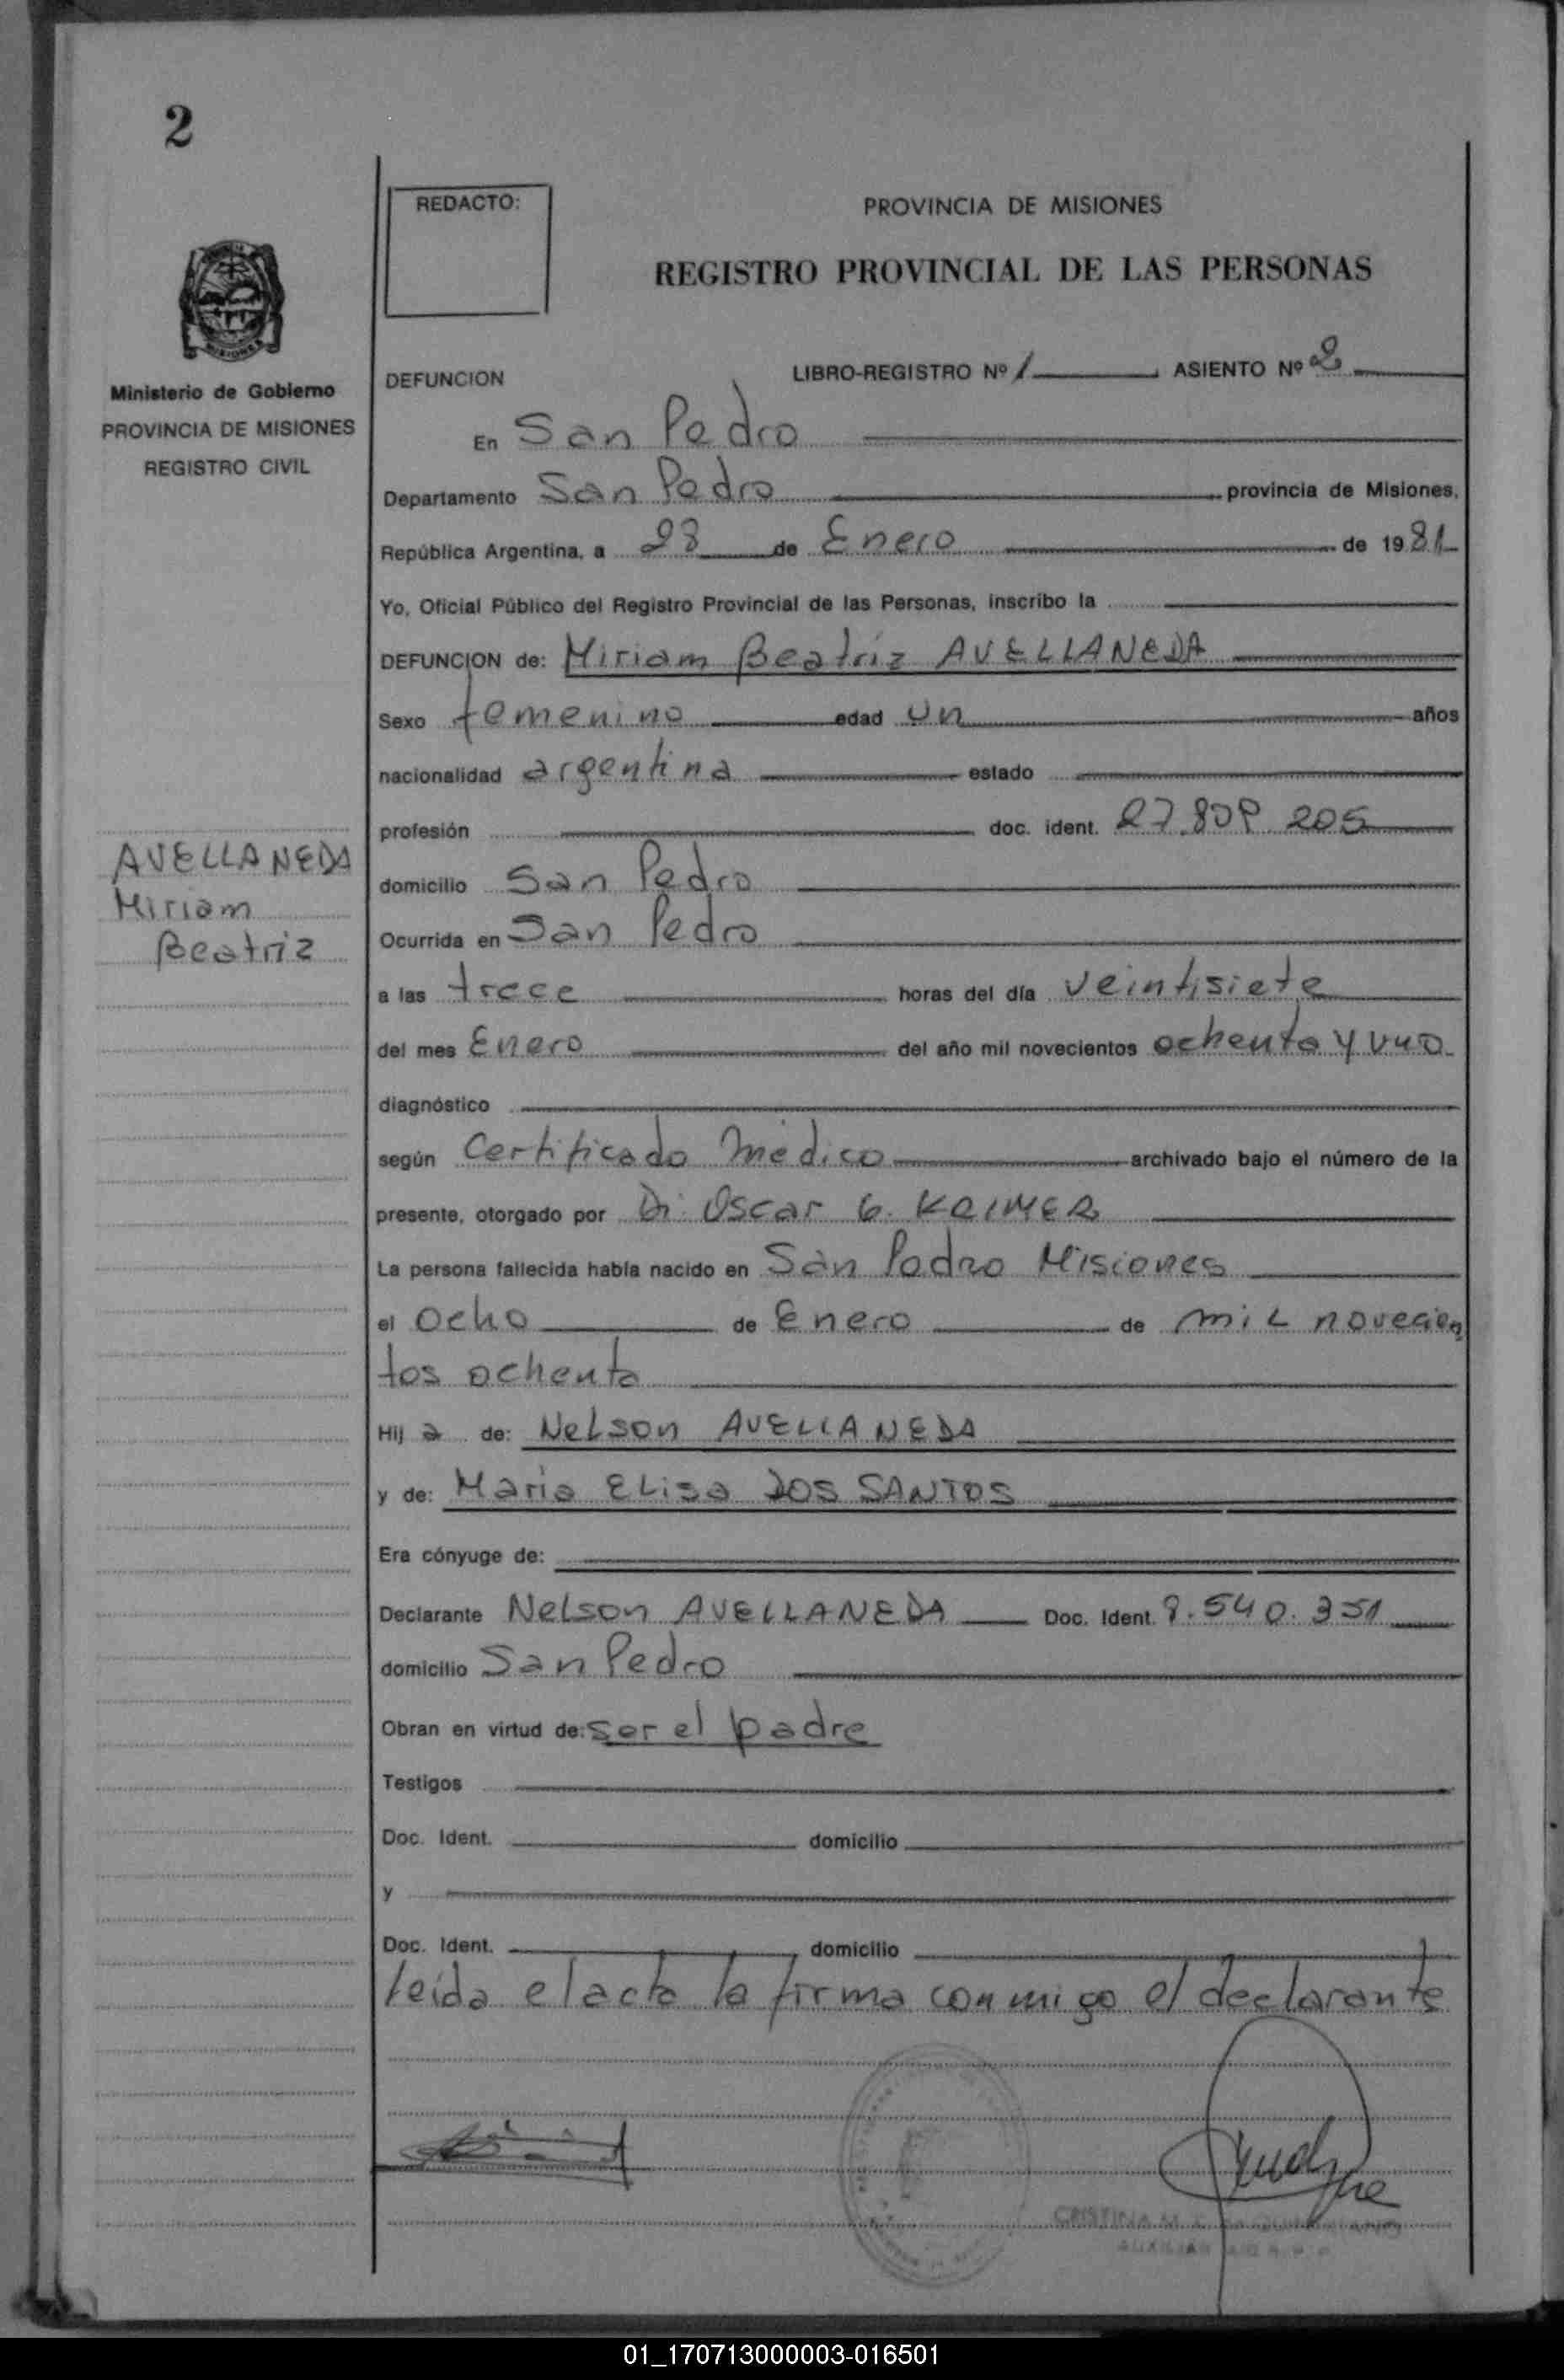 2
REDACTO:
PROVINCIA DE MISIONES
REGISTRO PROVINCIAL DE LAS PERSONAS
Ministerio de Gobierno
PROVINCIA DE MISIONES
REGISTRO CIVIL
DEFUNCION LIBRO-REGISTRO Nº 1 ASIENTO Nº 2
En San Pedro
Departamento San Pedro provincia de Misiones,
República Argentina, a 28 de Enero de 1981
Yo, Oficial Público del Registro Provincial de las Personas, inscribo la
DEFUNCION de: Miriam Beatriz AVELLANEDA
Sexo femenino edad un años
nacionalidad argentina estado
profesión doc. ident. 27.809 205
AVELLANEDA
Miriam
Beatriz
domicilio San Pedro
Ocurrida en San Pedro
a las trece horas del día veintisiete
del mes Enero del año mil novecientos ochenta y uno
diagnóstico
según Certificado Médico archivado bajo el número de la
presente, otorgado por Dr. Oscar G. KRIMER
La persona fallecida había nacido en San Pedro Misiones
el ocho de Enero de mil novecien
tos ochenta
Hij a de: Nelson AVELLANEDA
y de: Maria Elisa DOS SANTOS
Era cónyuge de:
Declarante Nelson AVELLANEDA Doc. Ident. 8.540.351
domicilio San Pedro
Obran en virtud de: ser el padre
Testigos
Doc. Ident. domicilio
y
Doc. Ident. domicilio
leida el acta la firma conmigo el declarante
CRISTINA M.
AUXILIAR
01_170713000003-016501